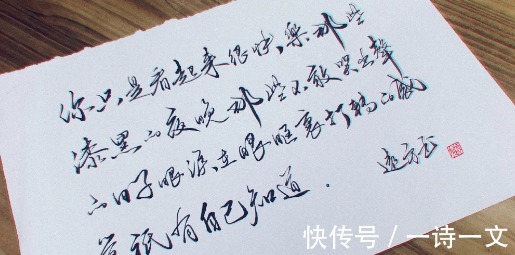 你只是看起来很快樂那些
漆黑的夜晚那些不敢哭出聲
的日子眼淚在眼眶裏打轉的感
覺祇有自己知道.
快传号／一诗一文